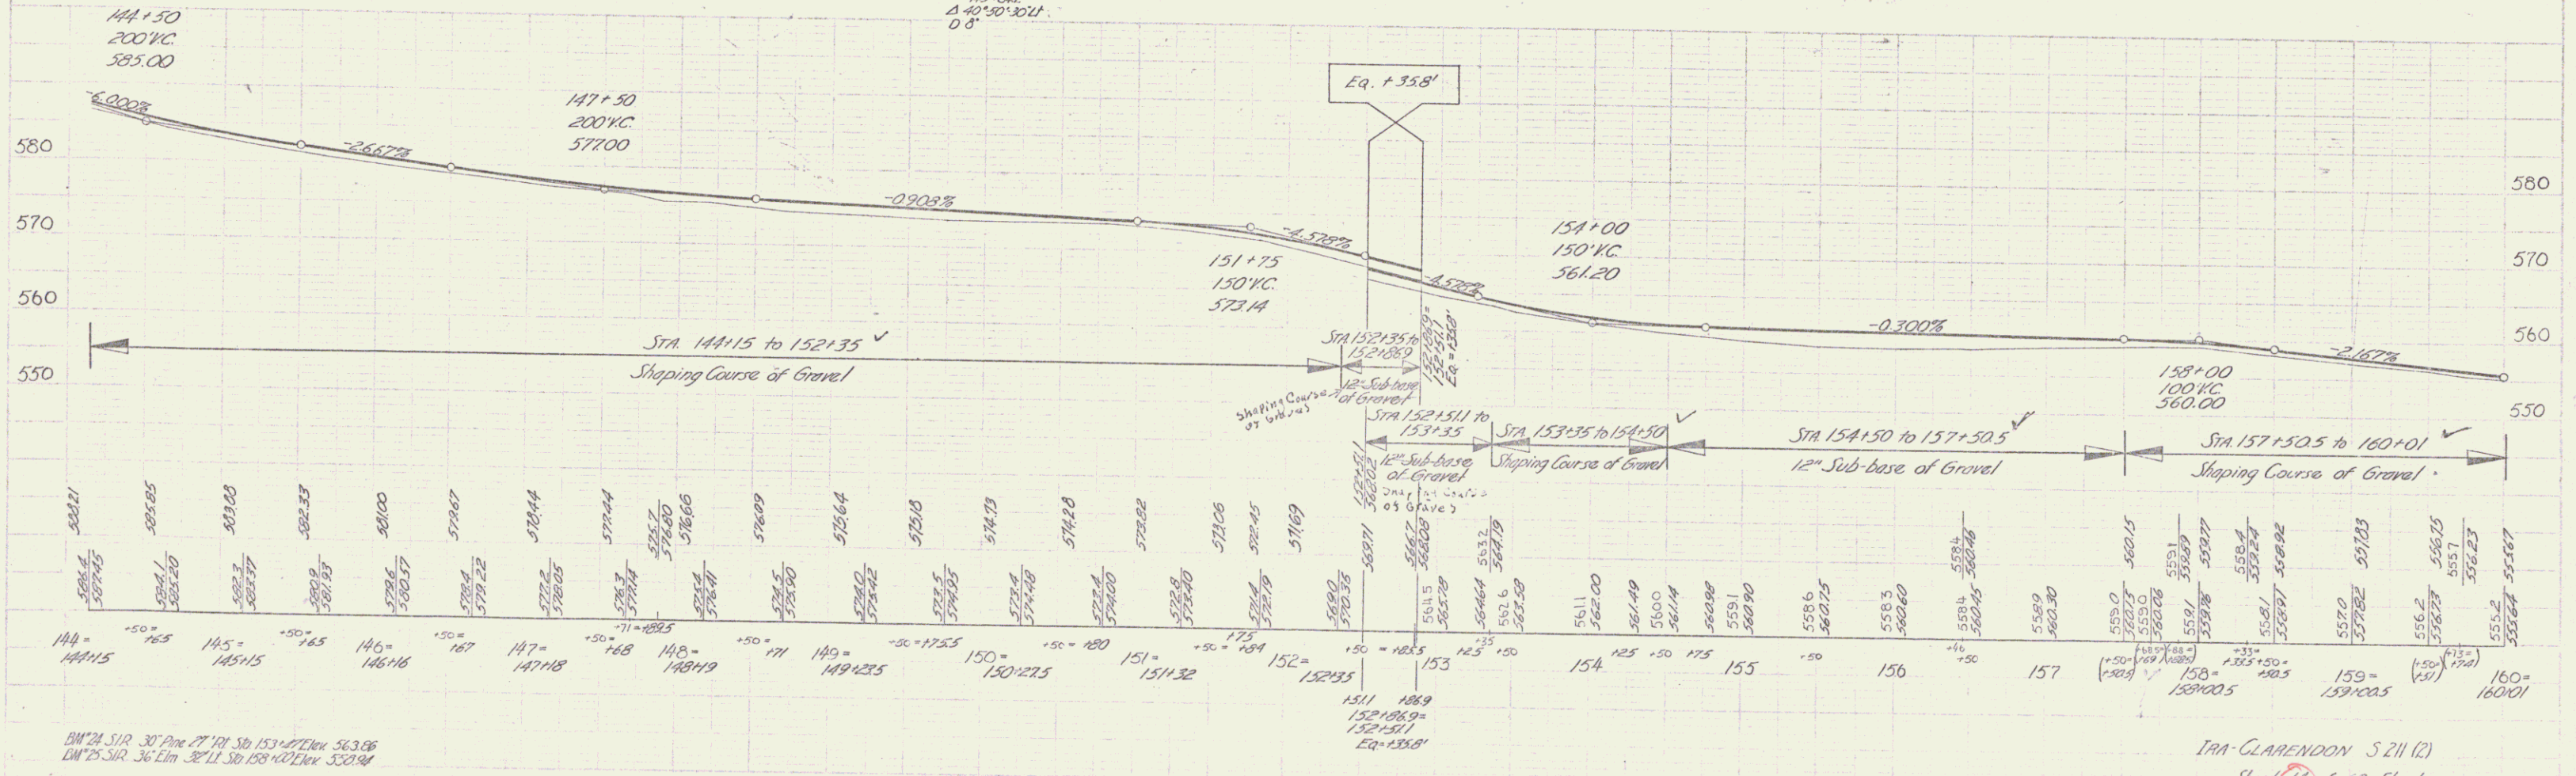 Δ 40°50'30" Lt.
D 8°
144+50
200' V.C.
585.00
-6.000%
-2.667%
147+50
200' V.C.
577.00
-0.903%
Eq. +35.8'
-4.578%
151+75
150' V.C.
573.14
-4.578%
154+00
150' V.C.
561.20
-0.300%
158+00
100' V.C.
560.00
-2.167%
580
570
560
550
580
570
560
550
STA. 144+15 to 152+35 ✓
Shaping Course of Gravel
STA 152+35 to
152+86.9
12" Sub-base
of Gravel
Shaping Course
of Gravel
152+86.9=
152+51.1
Eq.=+35.8'
STA 152+51.1 to
153+35
12" Sub-base
of Gravel
Shaping Course
of Gravel
STA. 153+35 to 154+50 ✓
Shaping Course of Gravel
STA 154+50 to 157+50.5 ✓
12" Sub-base of Gravel
STA. 157+50.5 to 160+01 ✓
Shaping Course of Gravel
588.21 585.85 583.88 582.33 581.00 579.67 578.44 577.44 575.7 576.80 576.66 576.09 575.64 575.18 574.73 574.28 573.82 573.06 572.45 571.69 569.71 152+51.1 568.02 566.7 568.08 563.2 564.19 558.4 560.46 560.15 559.1 559.89 559.77 558.4 559.24 558.92 557.83 556.75 555.7 556.23 555.67
586.4 587.45 584.1 585.20 582.3 583.37 580.9 581.93 579.6 580.57 578.4 579.22 577.2 578.05 576.3 577.14 575.4 576.41 574.5 575.90 574.0 575.42 573.5 574.95 573.4 574.48 573.4 574.00 572.8 573.40 571.4 572.19 569.0 570.35 564.5 565.78 564.64 562.6 563.58 561.1 562.00 561.49 560.0 561.14 560.98 559.1 560.90 558.6 560.75 558.3 560.60 558.4 560.45 558.9 560.30 559.0 560.15 559.0 560.06 559.1 559.76 558.1 558.91 557.0 557.82 556.2 556.73 555.2 555.64
144= +50= 145= +50= 146= +50= 147= +50= +71=+89.5 148= +50= 149= +50=+75.5 150= +50=+80 151= +50= +75 152= +50 =+85.5 153 +25 +35 +50 154 +25 +50 +75 155 +50 156 +46 +50 157 (+50= 158= +33= +50= 159= (+50= (+73= 160=
144+15 +65 145+15 +65 146+16 +67 147+18 +68 148+19 +71 149+23.5 150+27.5 151+32 +84 152+35 +50.5) 158+00.5 +33.5 +50.5 159+00.5 +51) +74) 160+01
+51.1 +86.9
152+86.9=
152+51.1
Eq=+35.8'
BM #24 S.I.R. 30" Pine 27' Rt. Sta 153+47 Elev. 563.86
BM #25 S.I.R. 36" Elm 32' Lt Sta 158+00 Elev. 550.94
IRA-CLARENDON S 211 (2)